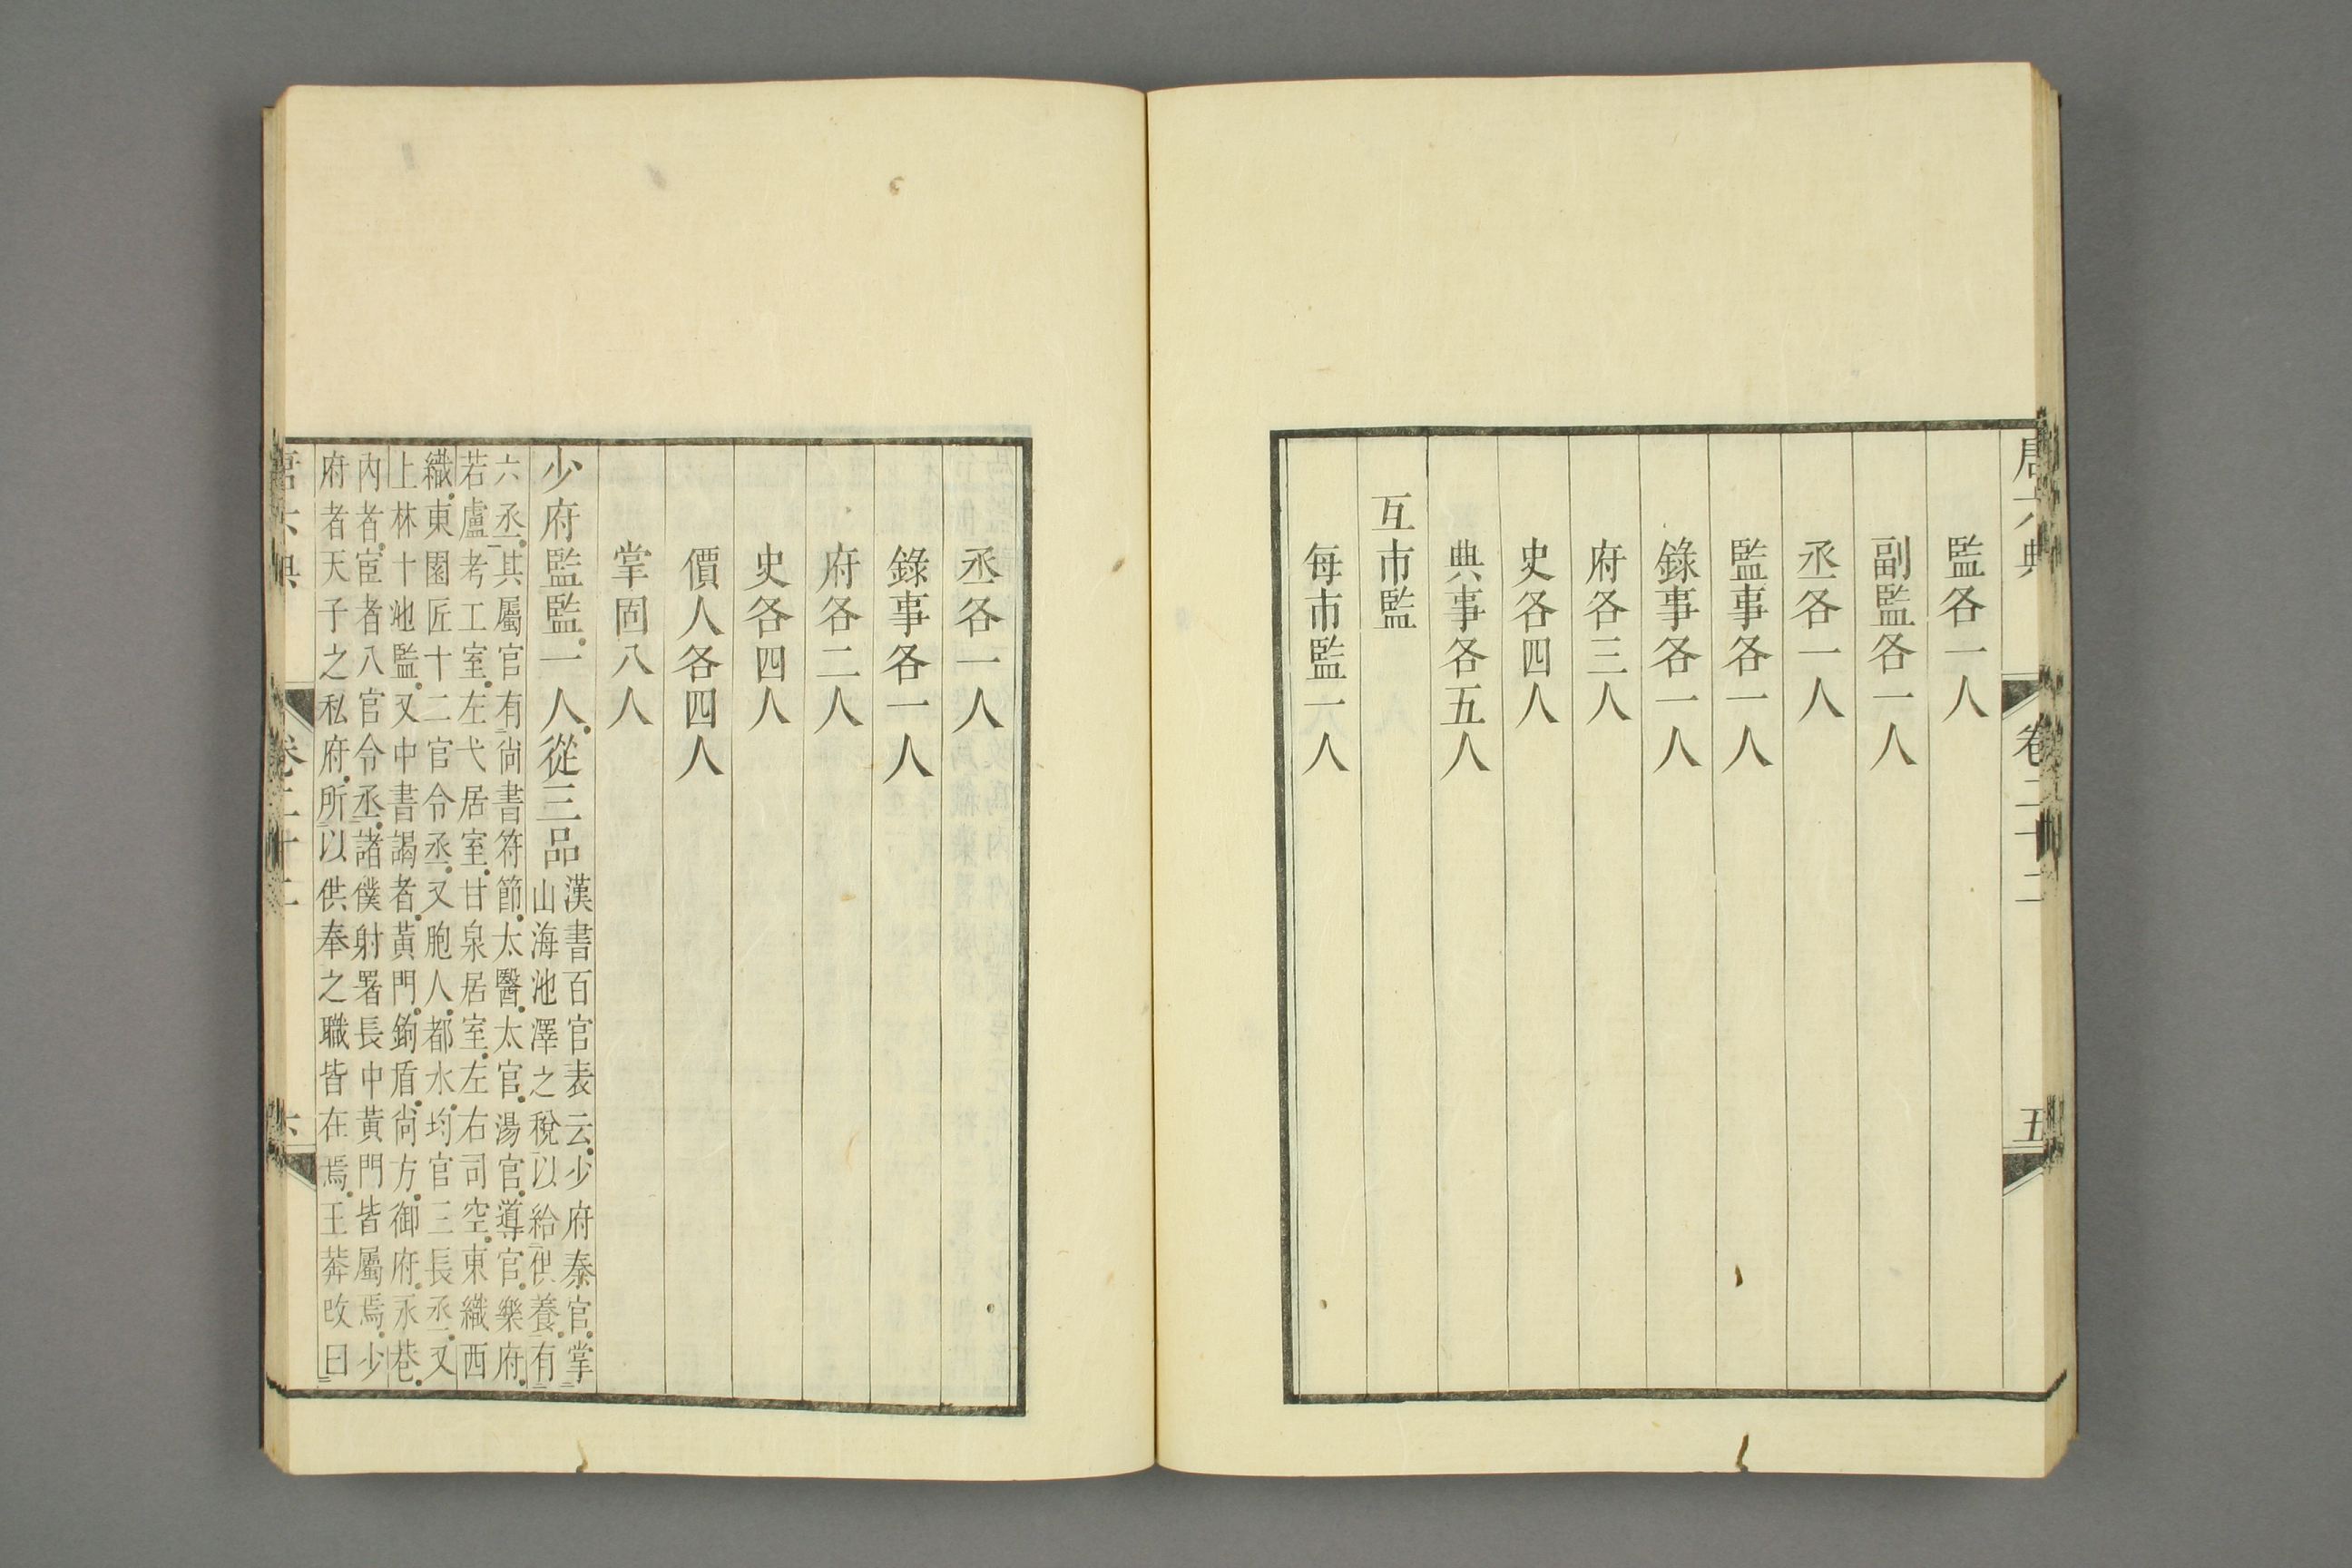 唐六典 卷二十二 五
監各一人
副監各一人
丞各一人
監事各一人
錄事各一人
府各三人
史各四人
典事各五人
互市監
每市監一人
丞各一人
錄事各一人
府各二人
史各四人
價人各四人
掌固八人
少府監監一人從三品
漢書百官表云少府秦官掌
山海池澤之稅以給供養有
六丞其屬官有尚書符節太醫太官湯官導官樂府
若盧考工室左弋居室甘泉居室左右司空東織西
織東園匠十二官令丞又胞人都水均官三長丞又
上林十池監又中書謁者黃門鉤盾尚方御府永巷
內者宦者八官令丞諸僕射署長中黃門皆屬焉少
府者天子之私府所以供奉之職皆在焉王莽改曰
唐六典 卷二十二 六